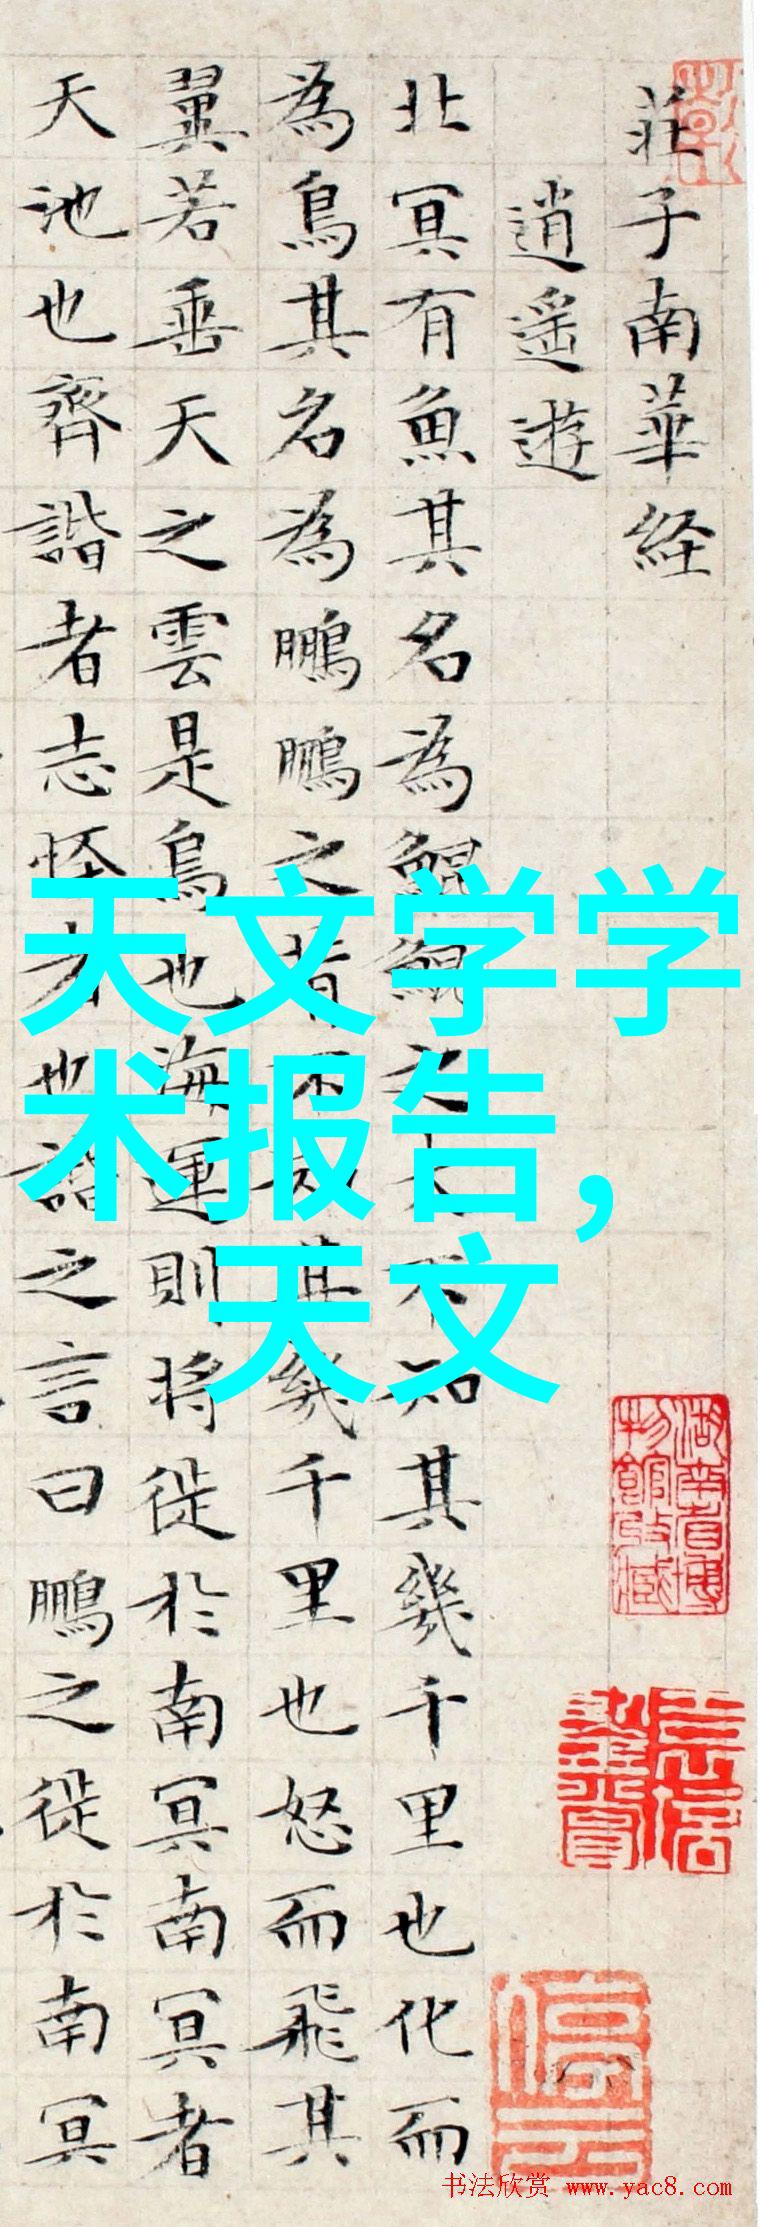 莊子南華経
逍遥遊
北冥有魚其名為鯤鯤之大不知其幾千里也化而
為鳥其名為鵬鵬之背不知其幾千里也怒而飛其
翼若垂天之雲是鳥也海運則将徙於南冥南冥者
天池也齊諧者志怪者也諧之言曰鵬之徙於南冥
天文学学
术报告，
天文
湖南省博
物館收藏
书法欣赏 www.yac8.com